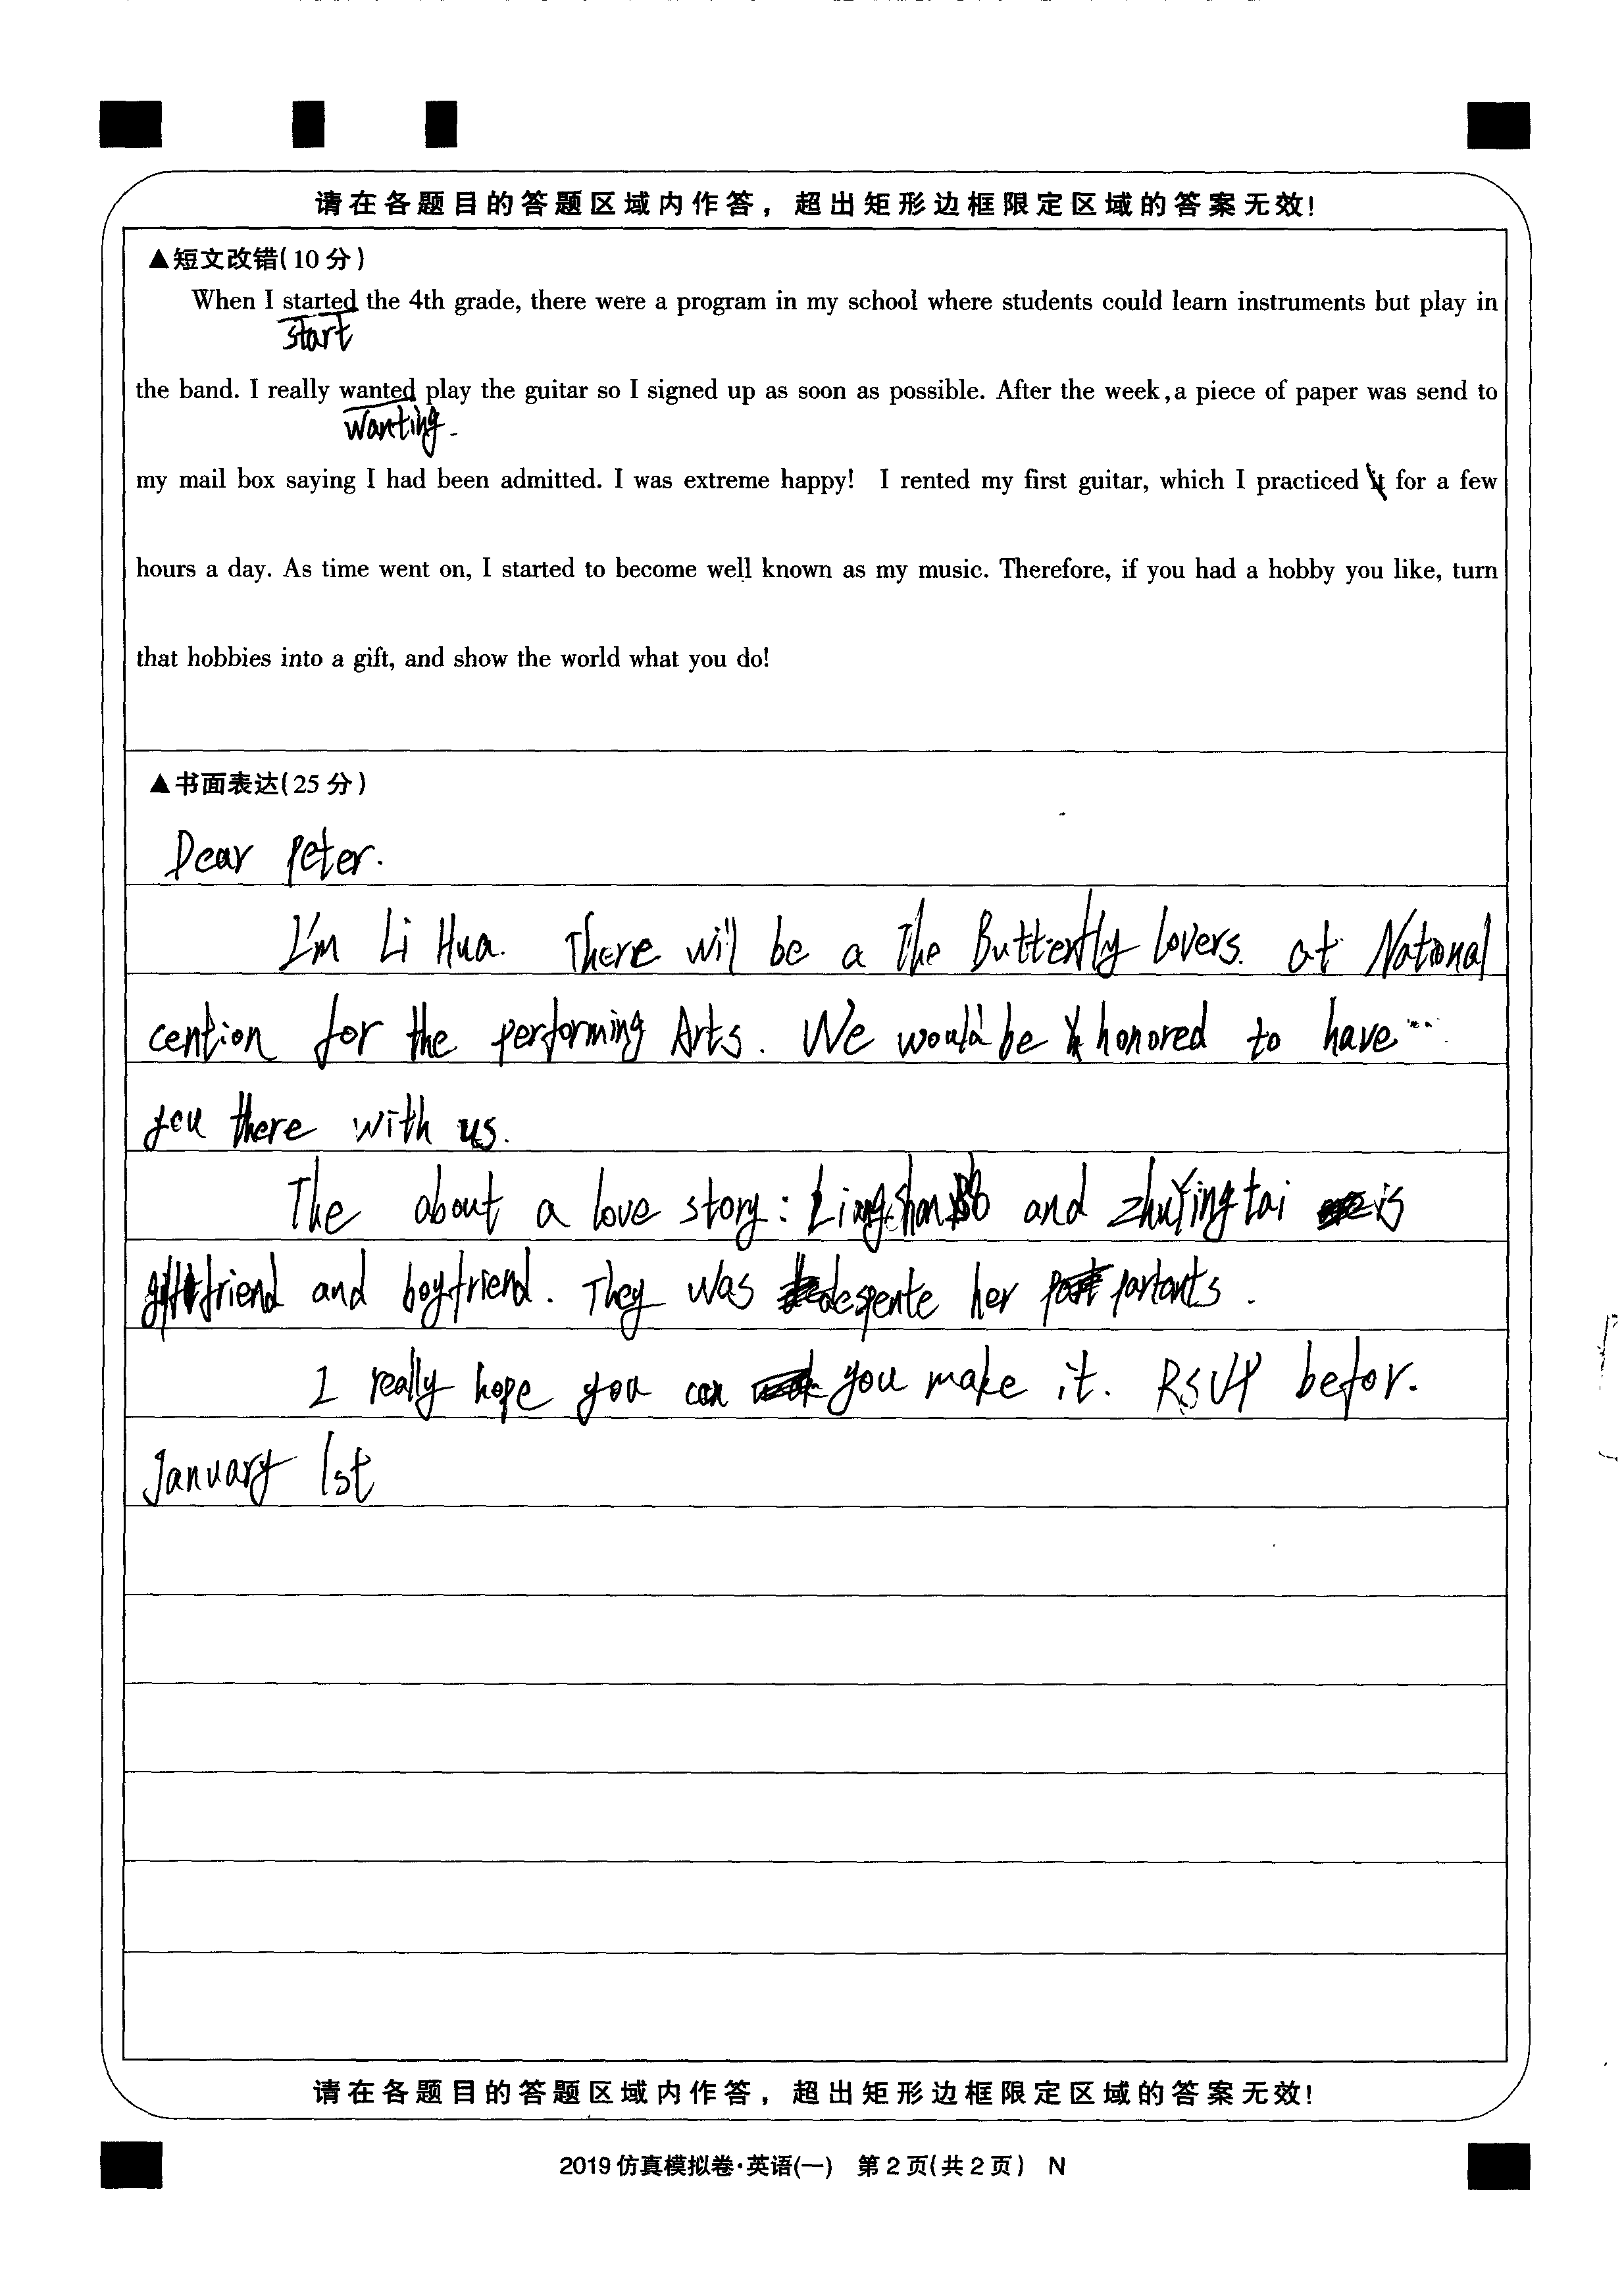 请在各题目的答题区域内作答，超出矩形边框限定区域的答案无效!
▲短文改错(10分)
When I started the 4th grade, there were a program in my school where students could learn instruments but play in
start
the band. I really wanted play the guitar so I signed up as soon as possible. After the week, a piece of paper was send to
wanting
my mail box saying I had been admitted. I was extreme happy! I rented my first guitar, which I practiced it for a few
hours a day. As time went on, I started to become well known as my music. Therefore, if you had a hobby you like, turn
that hobbies into a gift, and show the world what you do!
▲书面表达(25分)
Dear Peter.
I'm Li Hua. There will be a The Butterfly lovers. at National
cention for the performing Arts. We would be honored to have
you there with us.
The about a love story: and zhuYingtai is
friend and boyfriend. They was despente her partants.
I really hope you can you make it. RSVP befor.
January 1st
请在各题目的答题区域内作答，超出矩形边框限定区域的答案无效!
2019仿真模拟卷·英语(一) 第2页(共2页) N